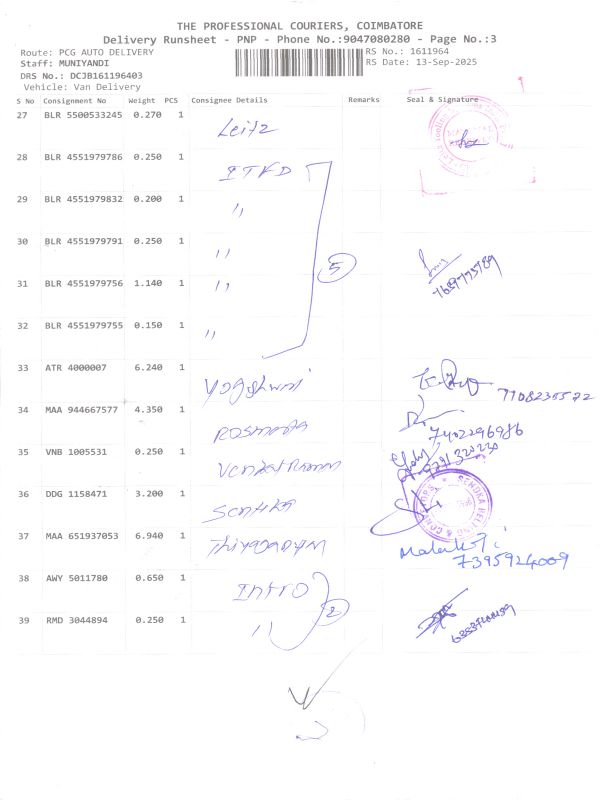 THE PROFESSIONAL COURIERS, COIMBATORE
Delivery Runsheet - PNP - Phone No.:9047080280 - Page No.:3
Route: PCG AUTO DELIVERY RS No.: 1611964
Staff: MUNIYANDI RS Date: 13-Sep-2025
DRS No.: DCJB161196403
Vehicle: Van Delivery
S No Consignment No Weight PCS Consignee Details Remarks Seal & Signature
27 BLR 5500533245 0.270 1 Leitz
28 BLR 4551979786 0.250 1
29 BLR 4551979832 0.200 1 "
30 BLR 4551979791 0.250 1 "
5
31 BLR 4551979756 1.140 1 "
32 BLR 4551979755 0.150 1 "
33 ATR 4000007 6.240 1
34 MAA 944667577 4.350 1 7402296986
35 VNB 1005531 0.250 1
36 DDG 1158471 3.200 1
37 MAA 651937053 6.940 1 7395924009
38 AWY 5011780 0.650 1 Intro
2
39 RMD 3044894 0.250 1 "